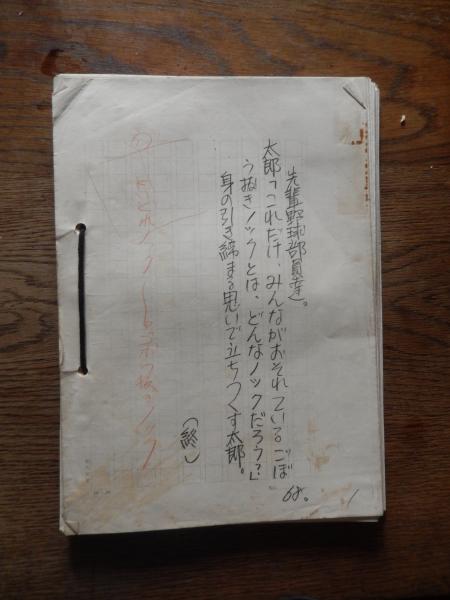 先輩野球部員達。
太郎「これだけ、みんながおそれているごぼ
う抜きノックとは、どんなノックだろう?」
身の引き締まる思いで立ちつくす太郎。
(終)
68。